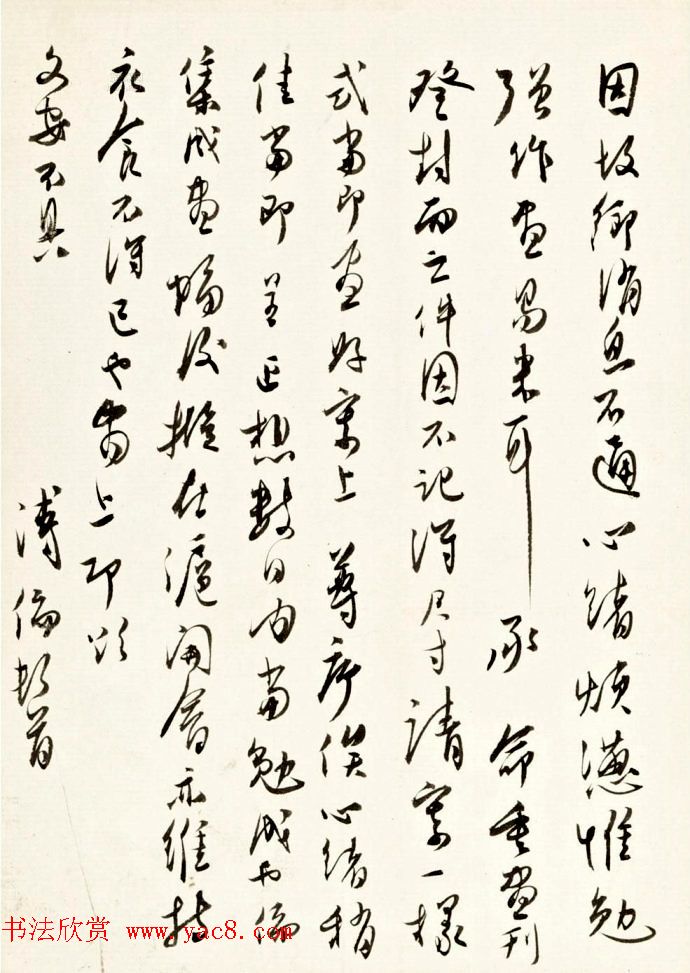 因故鄉消息不通心緒煩懣惟勉
強作畫易米耳承命畫刊
登封面之件因不記得尺寸請寄一樣
式當即畫好寄上尊序俟心緒稍
佳當即呈正想數日內當勉成也倫
集成畫幅後擬在滬開會亦維持
衣食不得已也耑上即頌
文安不具
溥倫頓首
书法欣赏 www.yac8.com